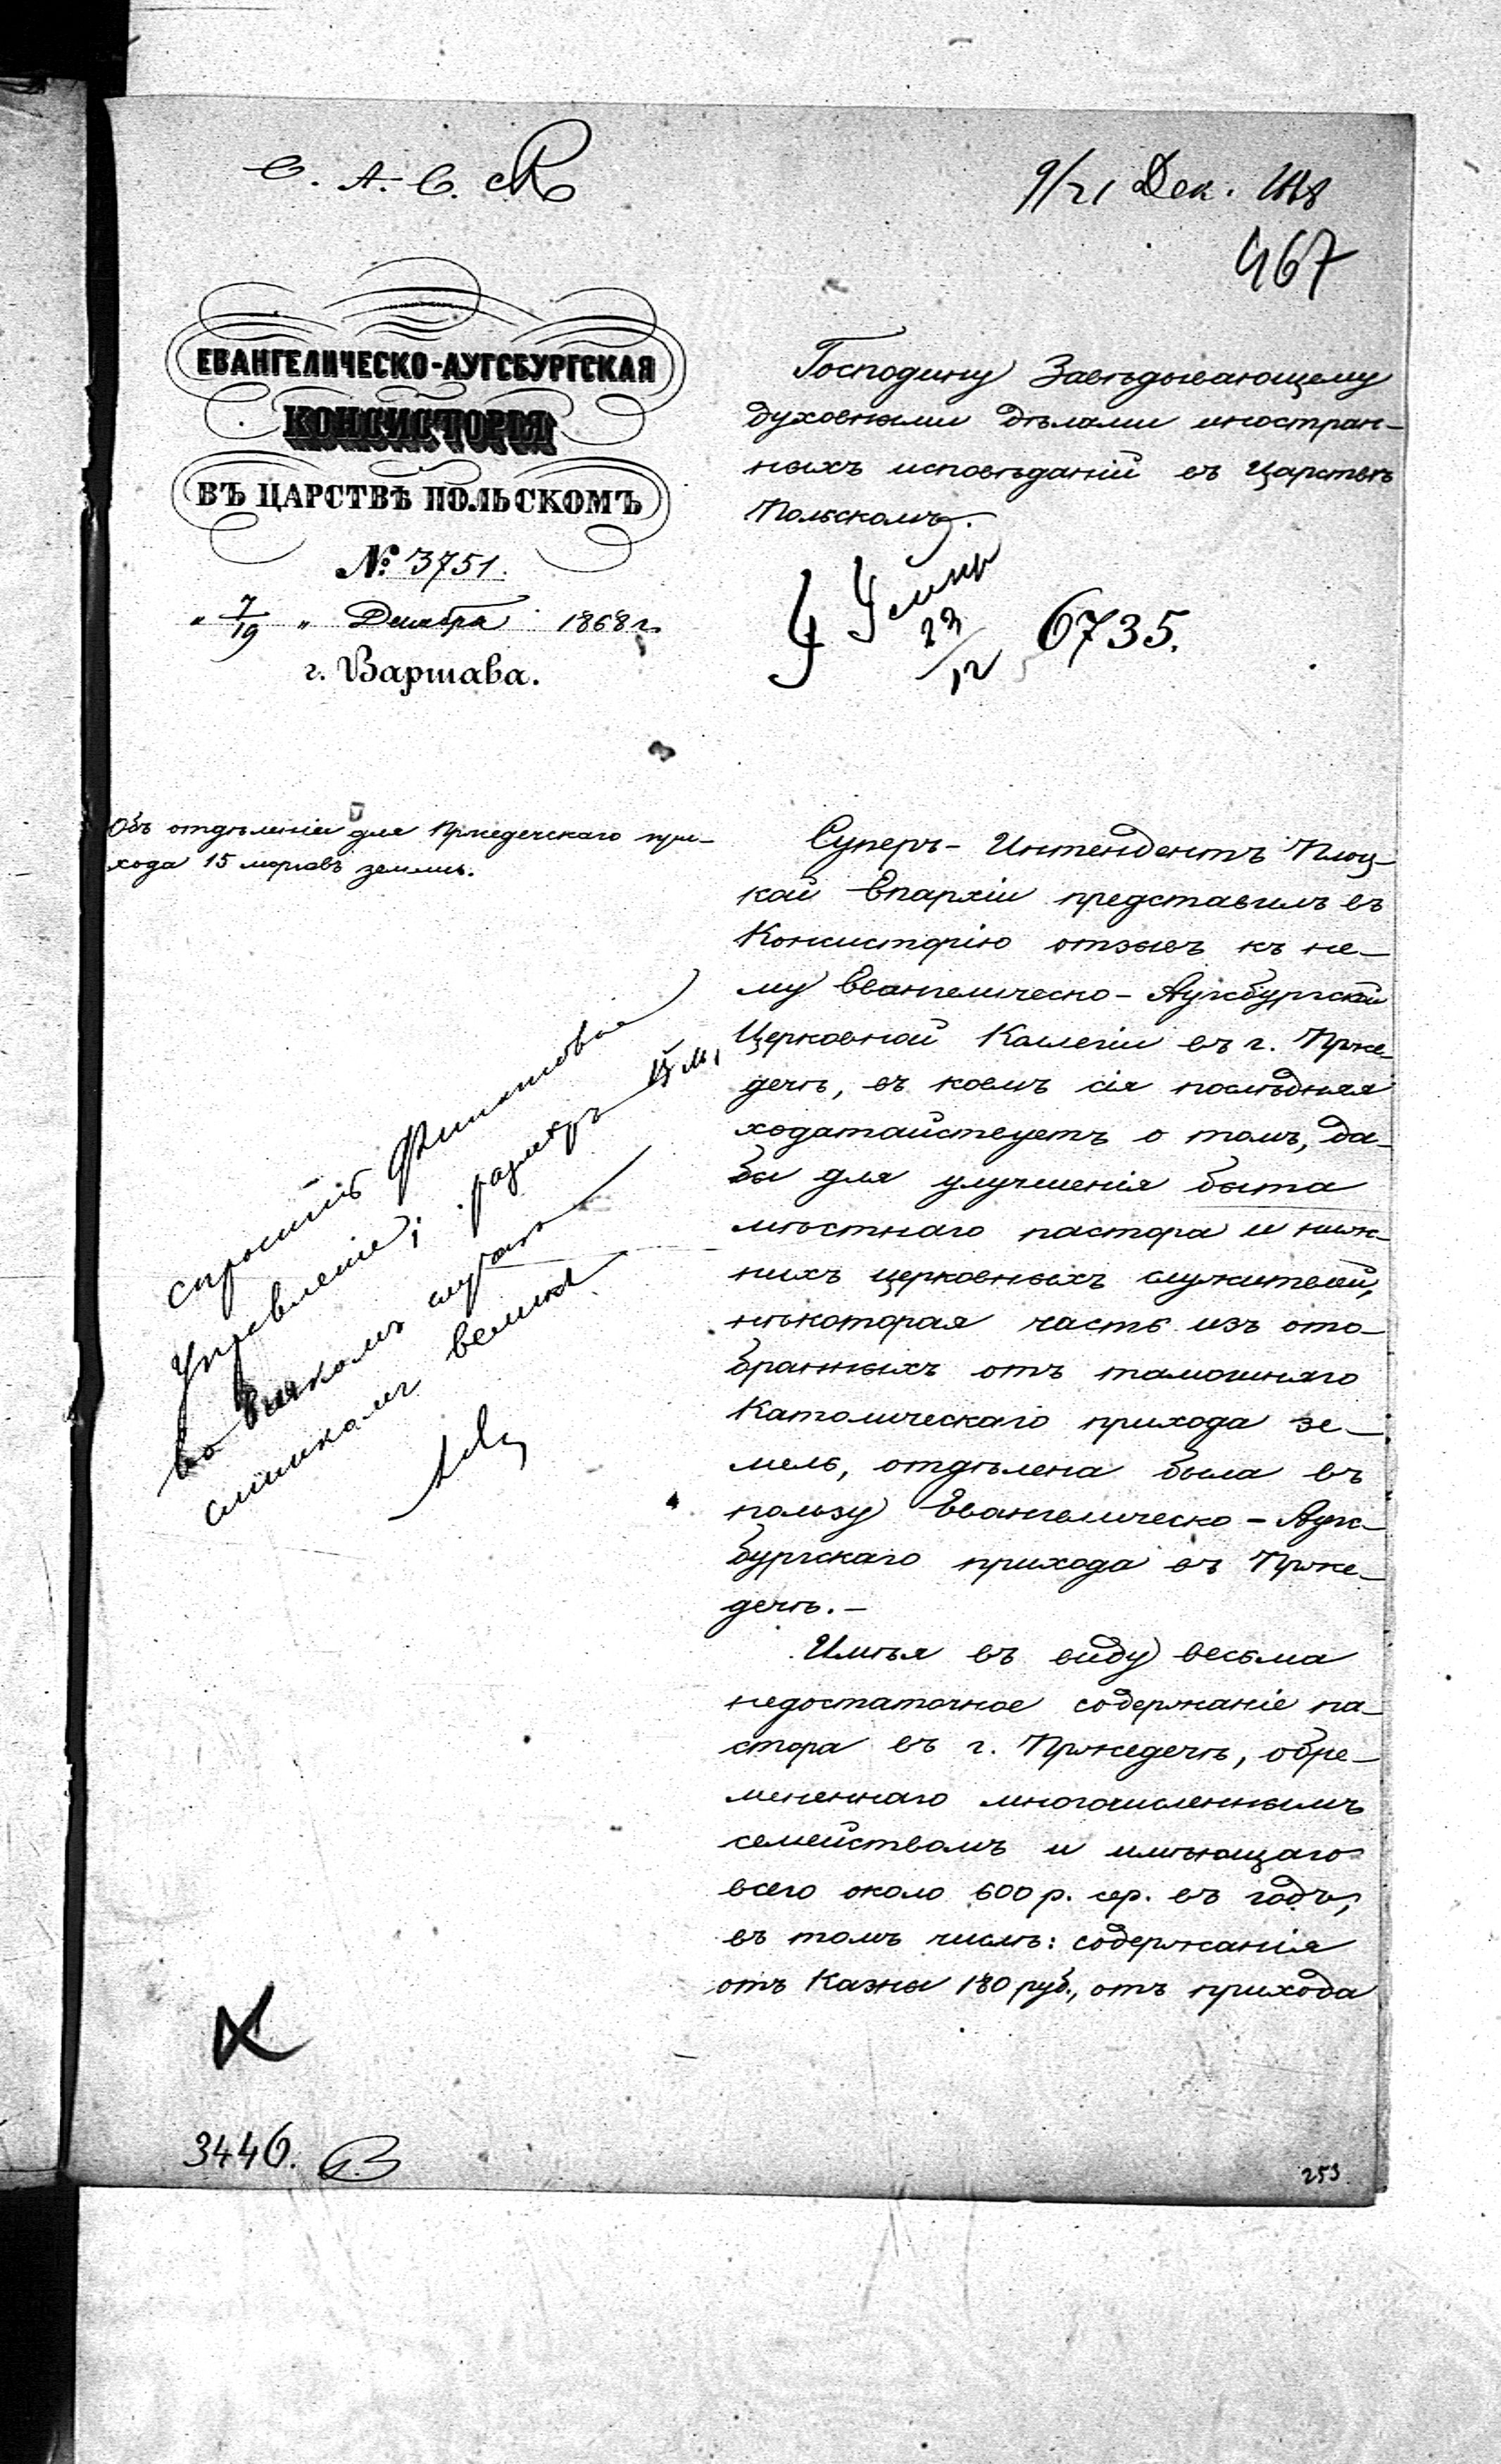 9/21 Дек. 1868
467
ЕВАНГЕЛИЧЕСКО-АУГСБУРГСКАЯ
КОНСИСТОРІЯ
ВЪ ЦАРСТВѢ ПОЛЬСКОМЪ
№ 3751.
" 7/19 " Декабря 1868 г.
г. Варшава.
Господину Завѣдывающему
духовными дѣлами иностран-
ныхъ исповѣданій въ Царствѣ
Польскомъ.
23/12 6735.
Объ отдѣленіи для Пржедечскаго при-
хода 15 морговъ земли.
спросить Финансовое
Управленіе; размѣръ 15 м.
во всякомъ случаѣ
слишкомъ великъ
Суперъ-Интендентъ Плоц-
кой Епархіи представилъ въ
Консисторію отзывъ къ не-
му Евангелическо-Аугсбургской
Церковной Коллегіи въ г. Прже-
дечѣ, въ коемъ сія послѣдняя
ходатайствуетъ о томъ, да-
бы для улучшенія быта
мѣстнаго пастора и ниж-
нихъ церковныхъ служителей,
нѣкоторая часть изъ ото-
бранныхъ отъ тамошняго
Католическаго прихода зе-
мель, отдѣлена была въ
пользу Евангелическо-Аугс-
бургскаго прихода въ Прже-
дечѣ.-
Имѣя въ виду весьма
недостаточное содержаніе па-
стора въ г. Пржедечѣ, обре-
мененнаго многочисленнымъ
семействомъ и имѣющаго
всего около 600 р. сер. въ годъ,
въ томъ числѣ: содержанія
отъ Казны 180 руб., отъ прихода
3446.
253